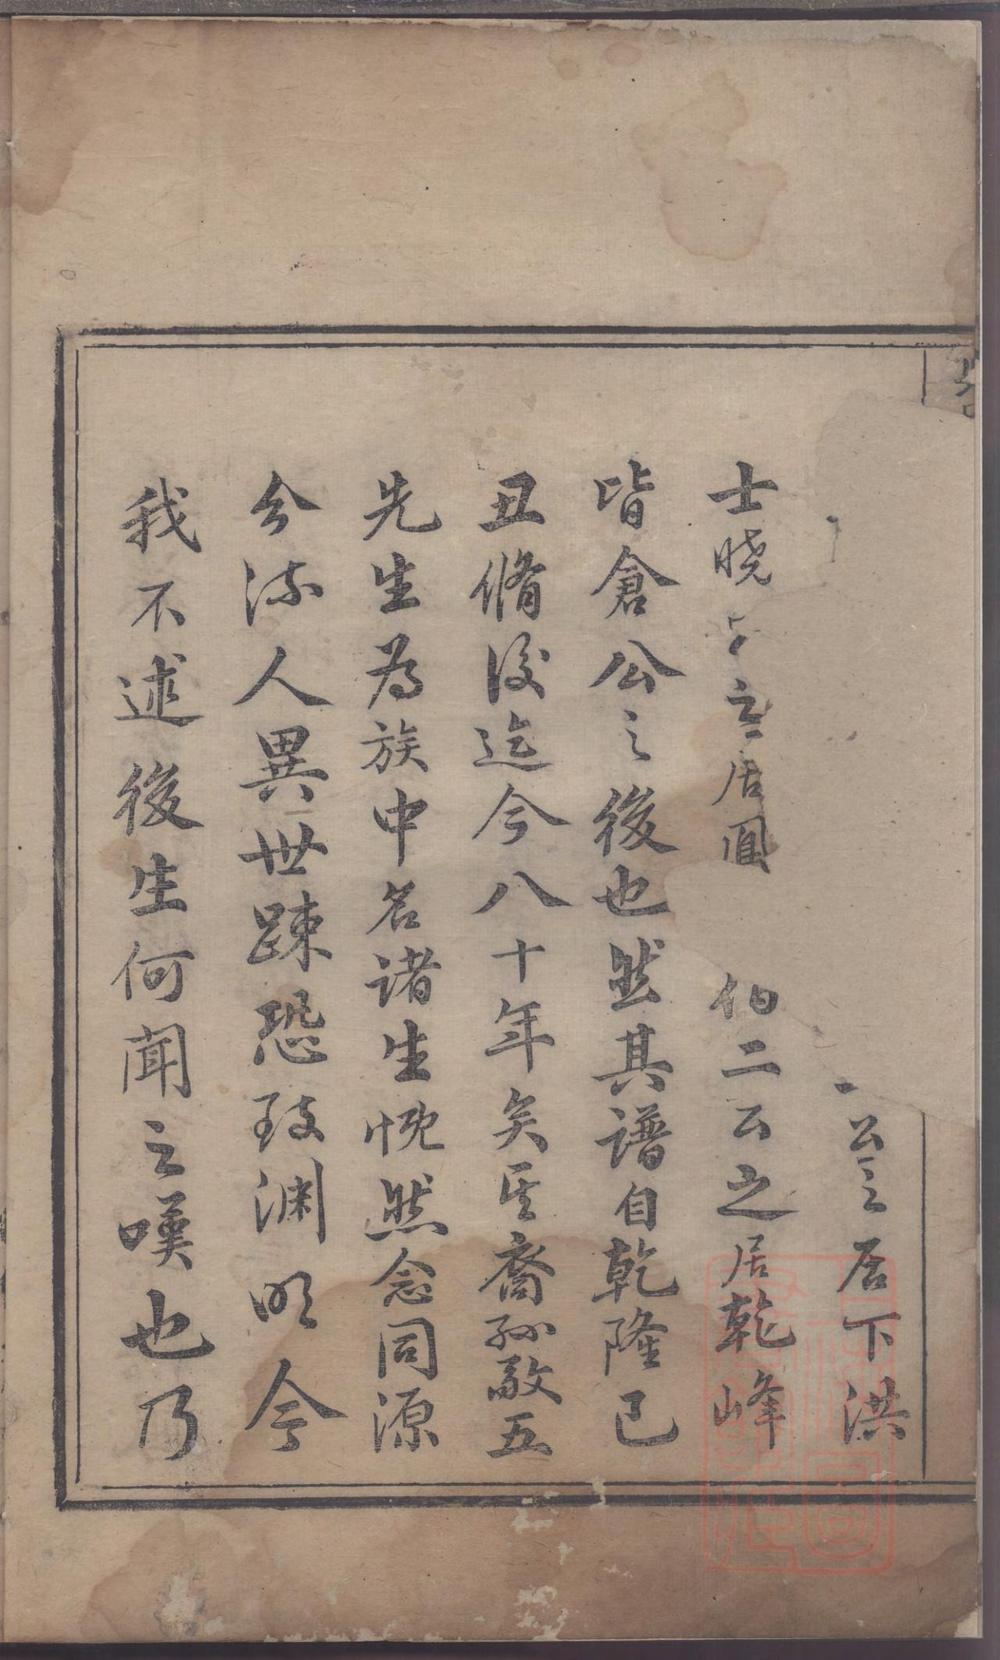 公之居下洪
士曉 之居圓 伯二公之居乾峰
皆倉公之後也然其譜自乾隆己
丑脩後迄今八十年矣其裔孫敬五
先生為族中名諸生慨然念同源
分流人異世疎恐致淵明今
我不述後生何聞之嘆也乃